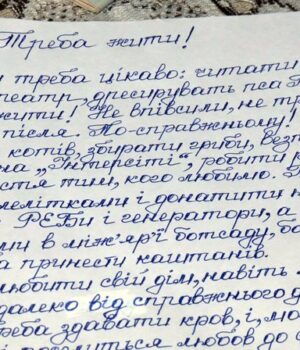 Треба жити!
треба цікаво: читати
театр, дресирувать пса
жити! Не впівсили, не
після. По-справжньому!
котів, збирати гриби,
на „Інтерсіті", робити
тим, кого любимо.
і донатити
РЕБи і генератори, а
в між'ярї ботсаду,
принести каштанів.
любити свій дім, навіть
далеко від справжнього
треба здавати кров, і,
любов до